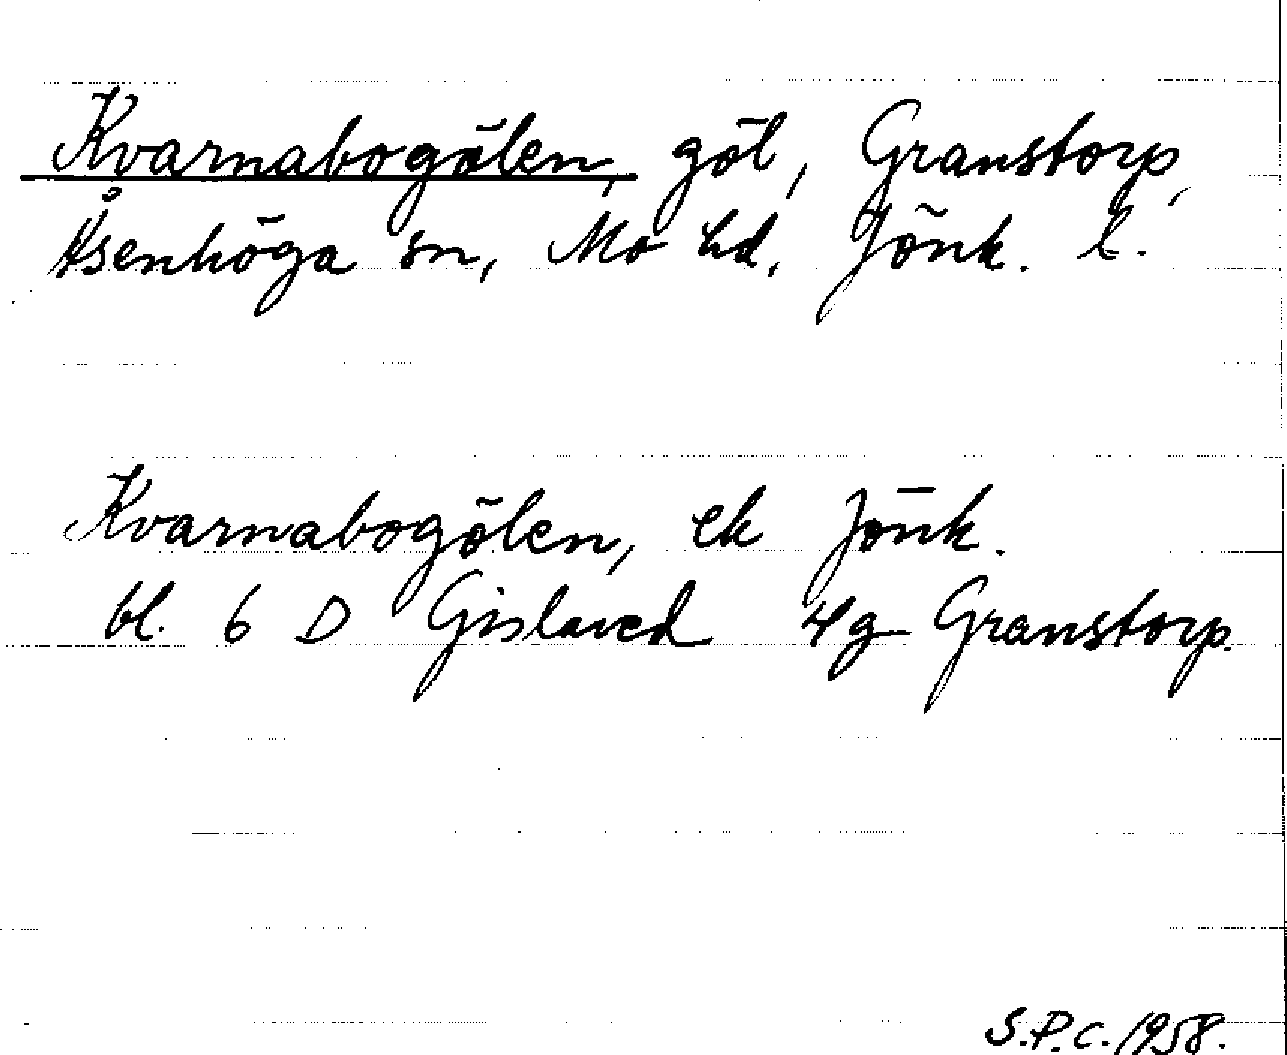 Kvarnabogölen, göl, Granstorp,
Åsenhöga sn, Mo hd, Jönk. l.
Kvarnabogölen, ek Jönk.
bl. 6 D Gislaved 4g Granstorp.
S.P.C. 1958.